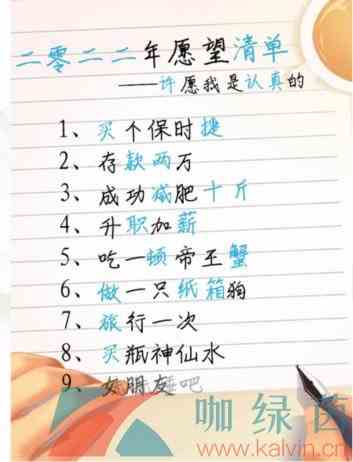 二零二二年愿望清单
——许愿我是认真的
1、买个保时捷
2、存款两万
3、成功减肥十斤
4、升职加薪
5、吃一顿帝王蟹
6、做一只纸箱狗
7、旅行一次
8、买瓶神仙水
9、女朋友睡吧
咖绿茵
www.kalvin.cn